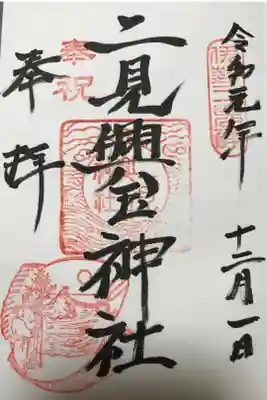 令和元年
十二月一日
二見興玉神社
奉祝
奉拝